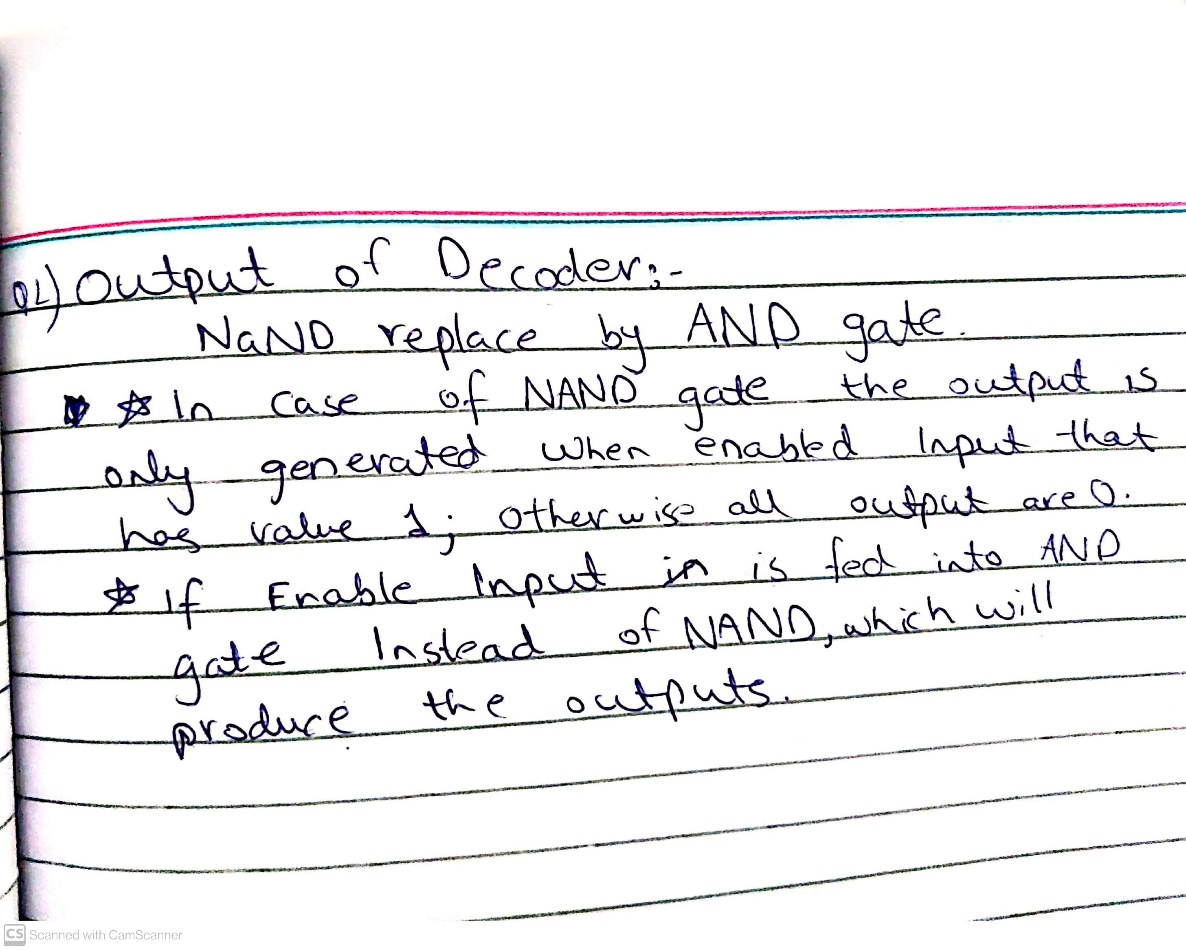 Q2) Output of Decoder:-
NaND replace by AND gate.
☆ In case of NAND gate the output is
only generated when enabled Input that
has value 1; Otherwise all output are 0.
☆ if Enable Input in is fed into AND
gate Instead of NAND, which will
produce the outputs.
CS Scanned with CamScanner